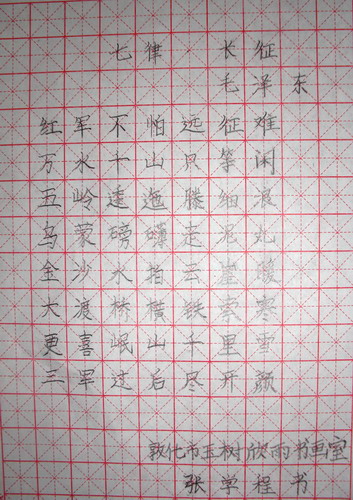 七律 长征
毛泽东
红军不怕远征难
万水千山只等闲
五岭逶迤腾细浪
乌蒙磅礴走泥丸
金沙水拍云崖暖
大渡桥横铁索寒
更喜岷山千里雪
三军过后尽开颜
敦化市玉树欣雨书画室
张学程书